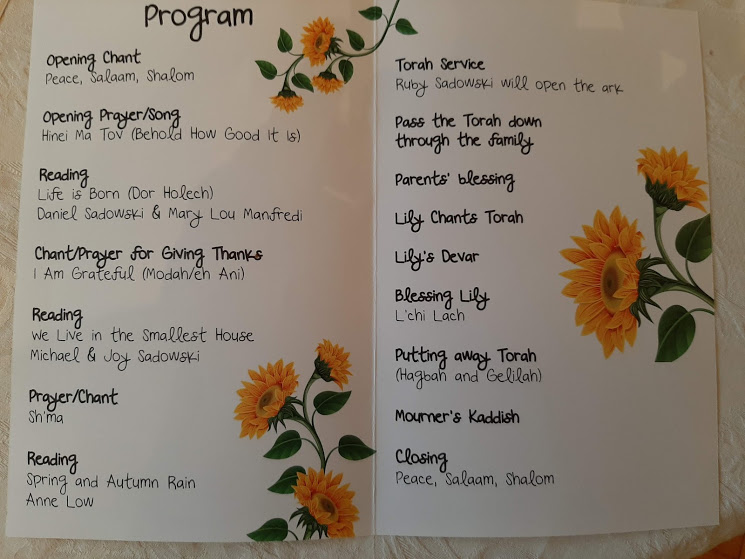 Program
Opening Chant
Peace, Salaam, Shalom
Opening Prayer/Song
Hinei Ma Tov (Behold How Good It Is)
Reading
Life is Born (Dor Holech)
Daniel Sadowski & Mary Lou Manfredi
Chant/Prayer for Giving Thanks
I Am Grateful (Modah/eh Ani)
Reading
We Live in the Smallest House
Michael & Joy Sadowski
Prayer/Chant
Sh'ma
Reading
Spring and Autumn Rain
Anne Low
Torah Service
Ruby Sadowski will open the ark
Pass the Torah down
through the family
Parents' blessing
Lily Chants Torah
Lily's Devar
Blessing Lily
L'chi Lach
Putting away Torah
(Hagbah and Gelilah)
Mourner's Kaddish
Closing
Peace, Salaam, Shalom